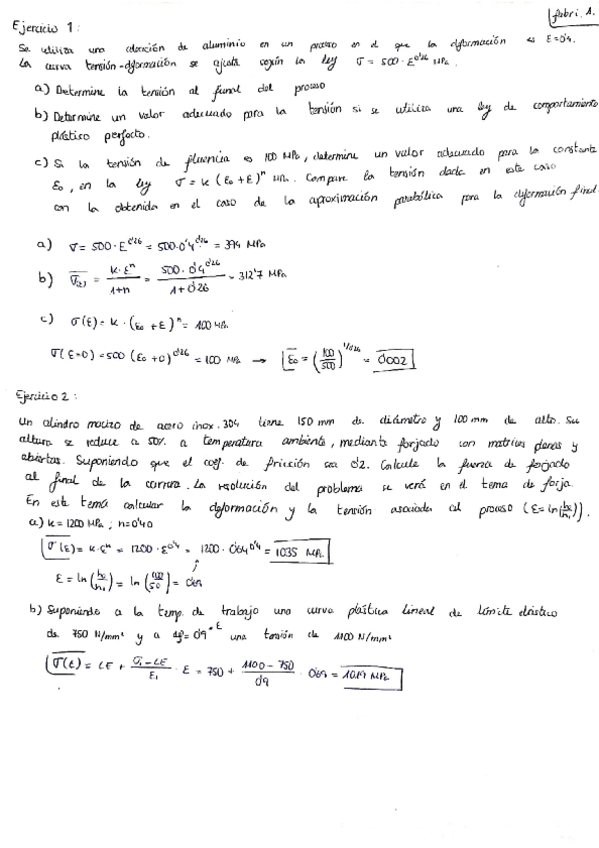 fabri. A.
Ejercicio 1:
Se utiliza una aleación de aluminio en un proceso en el que la deformación es ε=0'4.
La curva tensión-deformación se ajusta según la ley σ = 500·ε^0'26 MPa.
a) Determine la tensión al final del proceso
b) Determine un valor adecuado para la tensión si se utiliza una ley de comportamiento
plástico perfecto.
c) Si la tensión de fluencia es 100 MPa, determine un valor adecuado para la constante
ε₀, en la ley σ = K (ε₀ + ε)^n MPa. Compare la tensión dada en este caso
con la obtenida en el caso de la aproximación parabólica para la deformación final.
a) σ = 500·ε^0'26 = 500·0'4^0'26 = 394 MPa
b) σ̄(ε) = K·ε^n / 1+n = 500·0'4^0'26 / 1+0'26 = 312'7 MPa
c) σ(ε) = K·(ε₀+ε)^n = 100 MPa
σ(ε=0) = 500 (ε₀+0)^0'26 = 100 MPa → ε₀ = (100/500)^1/0'26 = 0'002
Ejercicio 2:
Un cilindro macizo de acero inox. 304 tiene 150 mm de diámetro y 100 mm de alto. Su
altura se reduce a 50% a temperatura ambiente, mediante forjado con matrices planas y
abiertas. Suponiendo que el coef. de fricción sea 0'2. Calcule la fuerza de forjado
al final de la carrera. La resolución del problema se verá en el tema de forja.
En este tema calcular la deformación y la tensión asociada al proceso (ε=ln(h₀/h₁)).
a) K=1200 MPa; n=0'40
σ(ε) = K·ε^n = 1200·ε^0'4 = 1200·0'69^0'4 = 1035 MPa.
ε = ln(h₀/h₁) = ln(100/50) = 0'69
b) Suponiendo a la temp. de trabajo una curva plástica lineal de límite elástico
de 750 N/mm² y a 0'9=ε una tensión de 1100 N/mm²
σ(ε) = LE + σ₁-LE / ε₁ · ε = 750 + 1100-750 / 0'9 · 0'69 = 1019 MPa.